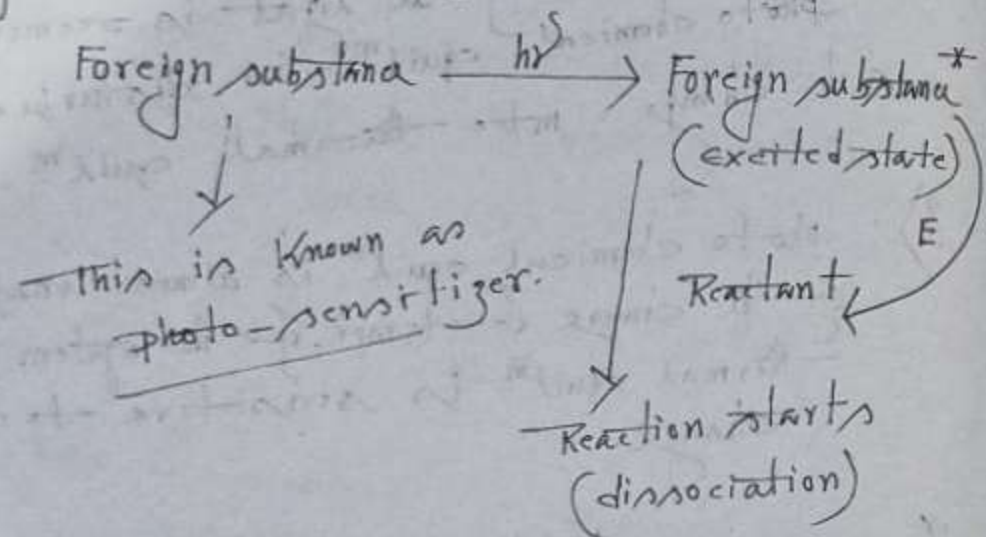 Foreign substance hν Foreign substance*
(excited state)
E
This is known as
photo-sensitizer.
Reactant
Reaction starts
(dissociation)